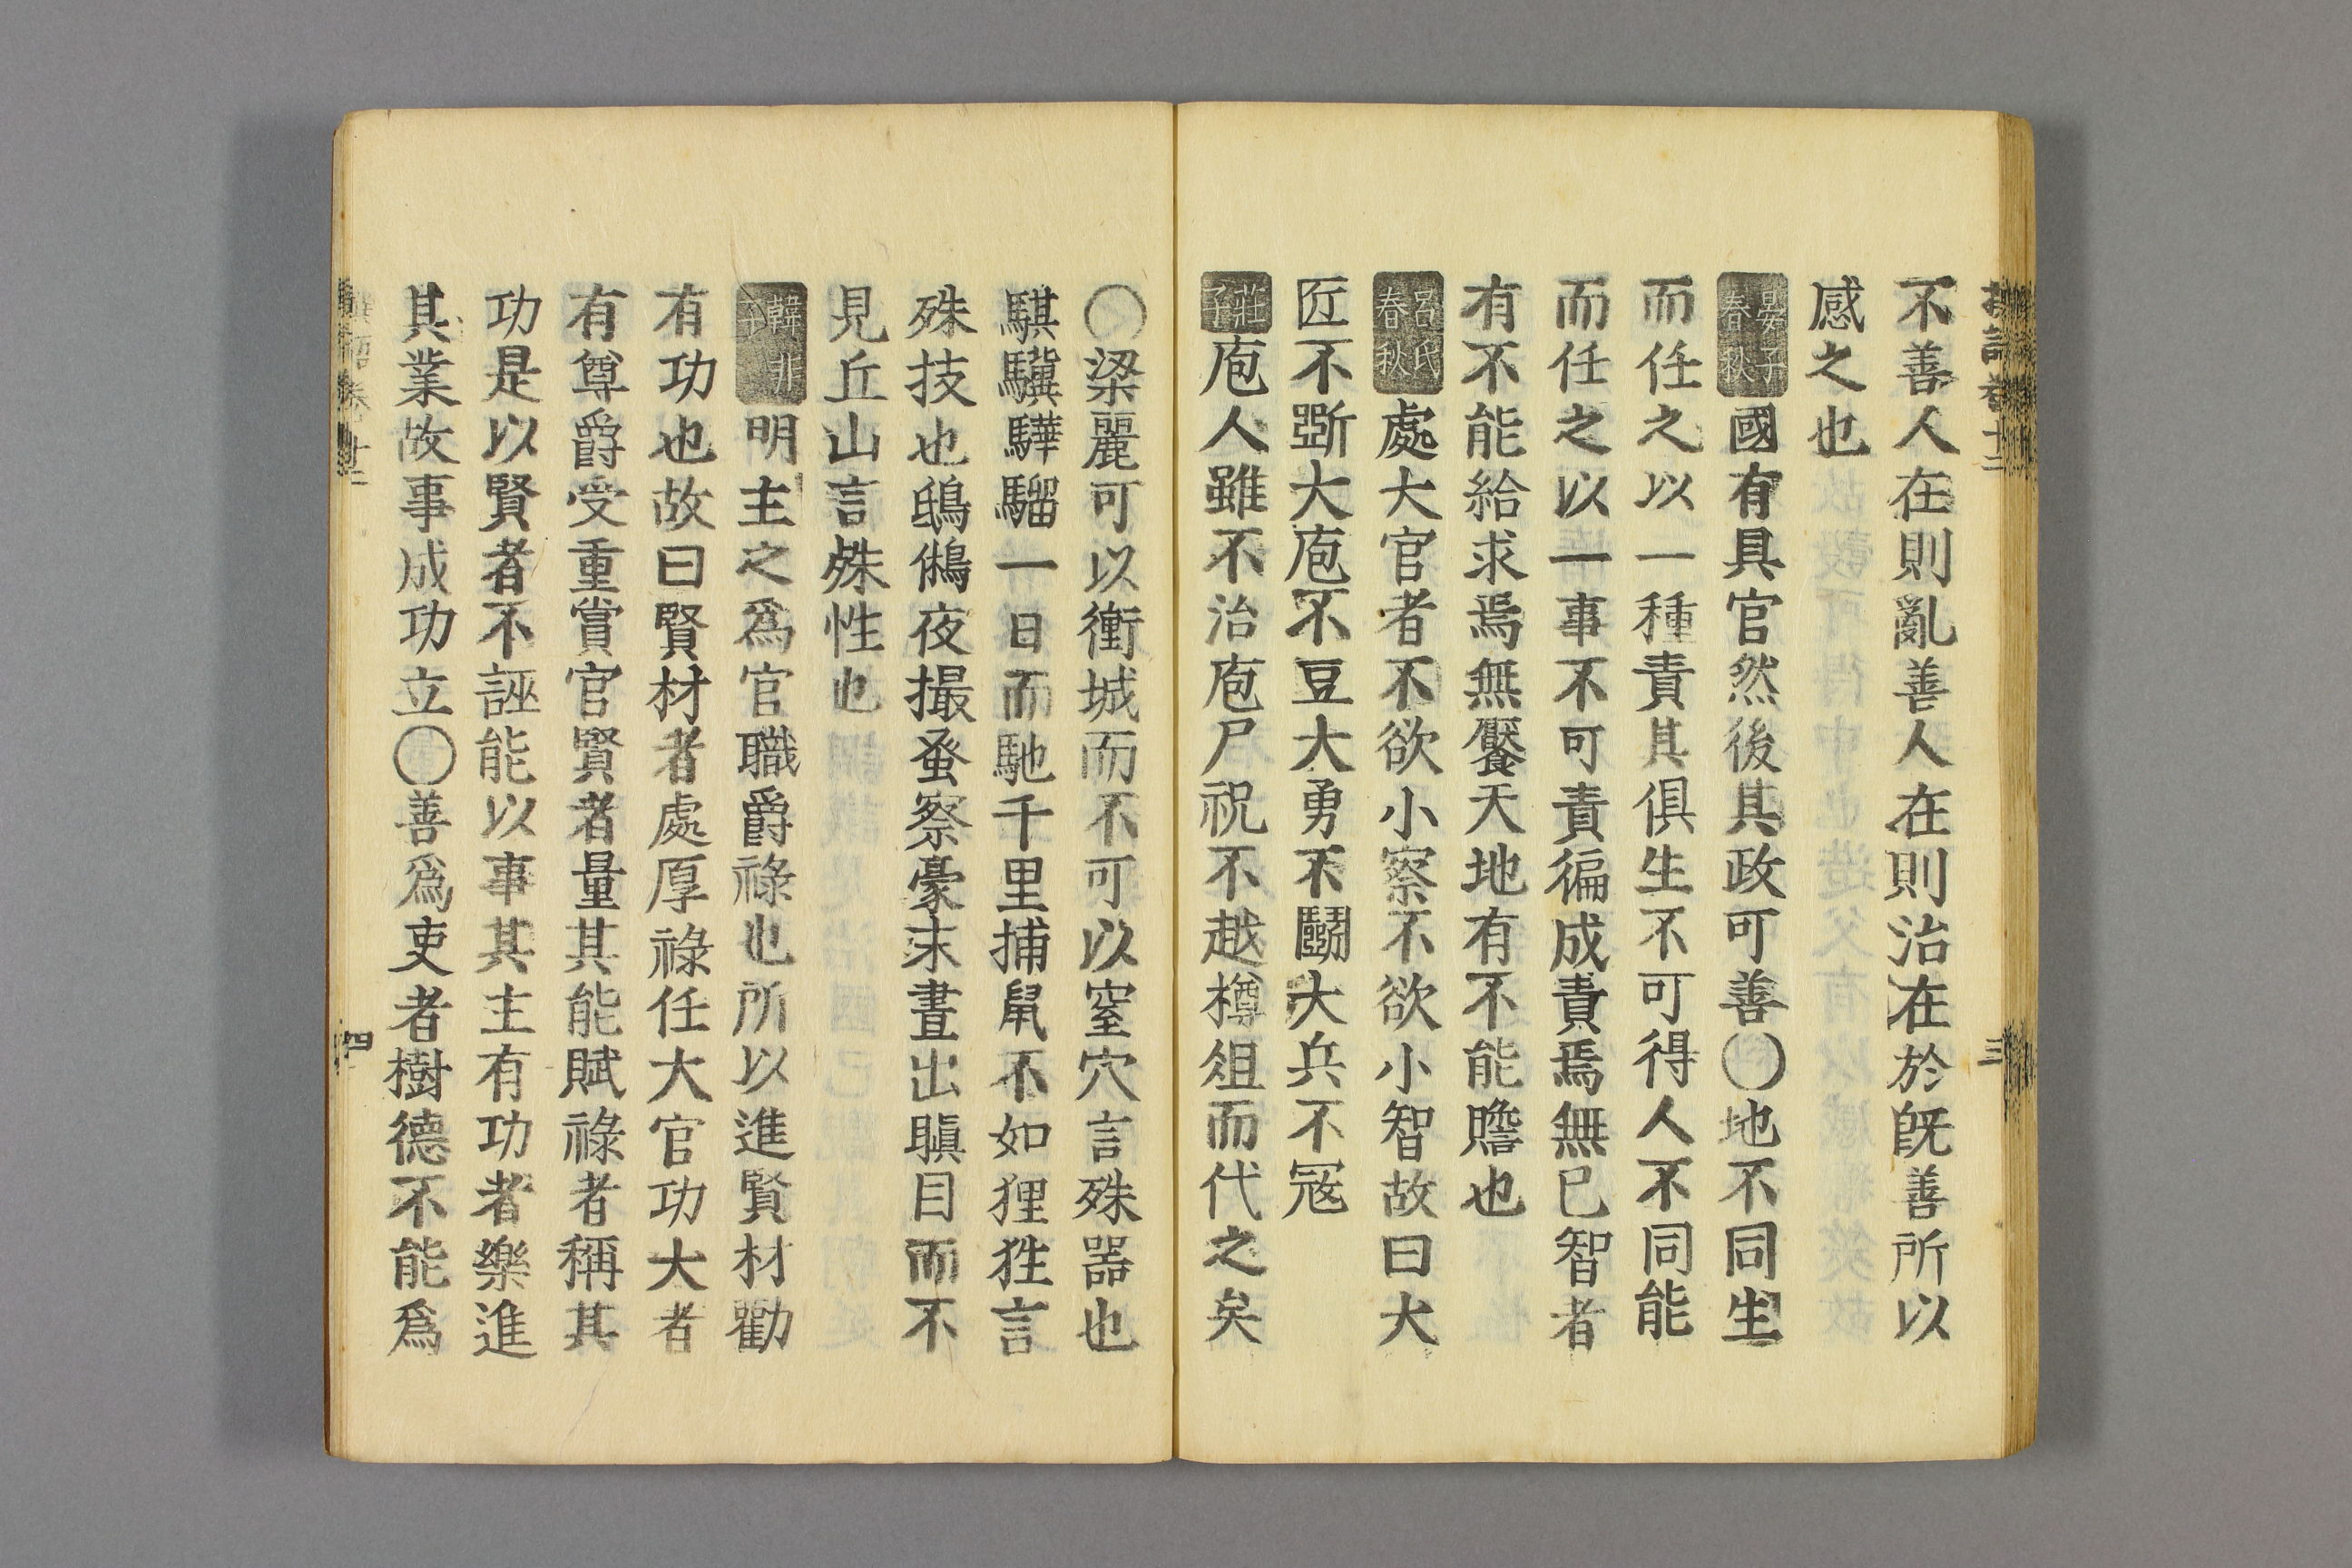 不善人在則亂善人在則治在於旣善所以
感之也
晏子春秋國有具官然後其政可善〇地不同生
而任之以一種責其俱生不可得人不同能
而任之以一事不可責徧成責焉無已智者
有不能給求焉無饜天地有不能贍也
呂氏春秋處大官者不欲小察不欲小智故曰大
匠不斲大庖不豆大勇不鬬大兵不寇
莊子庖人雖不治庖尸祝不越樽俎而代之矣
〇梁麗可以衝城而不可以窒穴言殊器也
騏驥驊騮一日而馳千里捕鼠不如狸狌言
殊技也鴟鵂夜撮蚤察豪末晝出瞋目而不
見丘山言殊性也
韓非子明主之爲官職爵祿也所以進賢材勸
有功也故曰賢材者處厚祿任大官功大者
有尊爵受重賞官賢者量其能賦祿者稱其
功是以賢者不誣能以事其主有功者樂進
其業故事成功立〇善爲吏者樹德不能爲
四